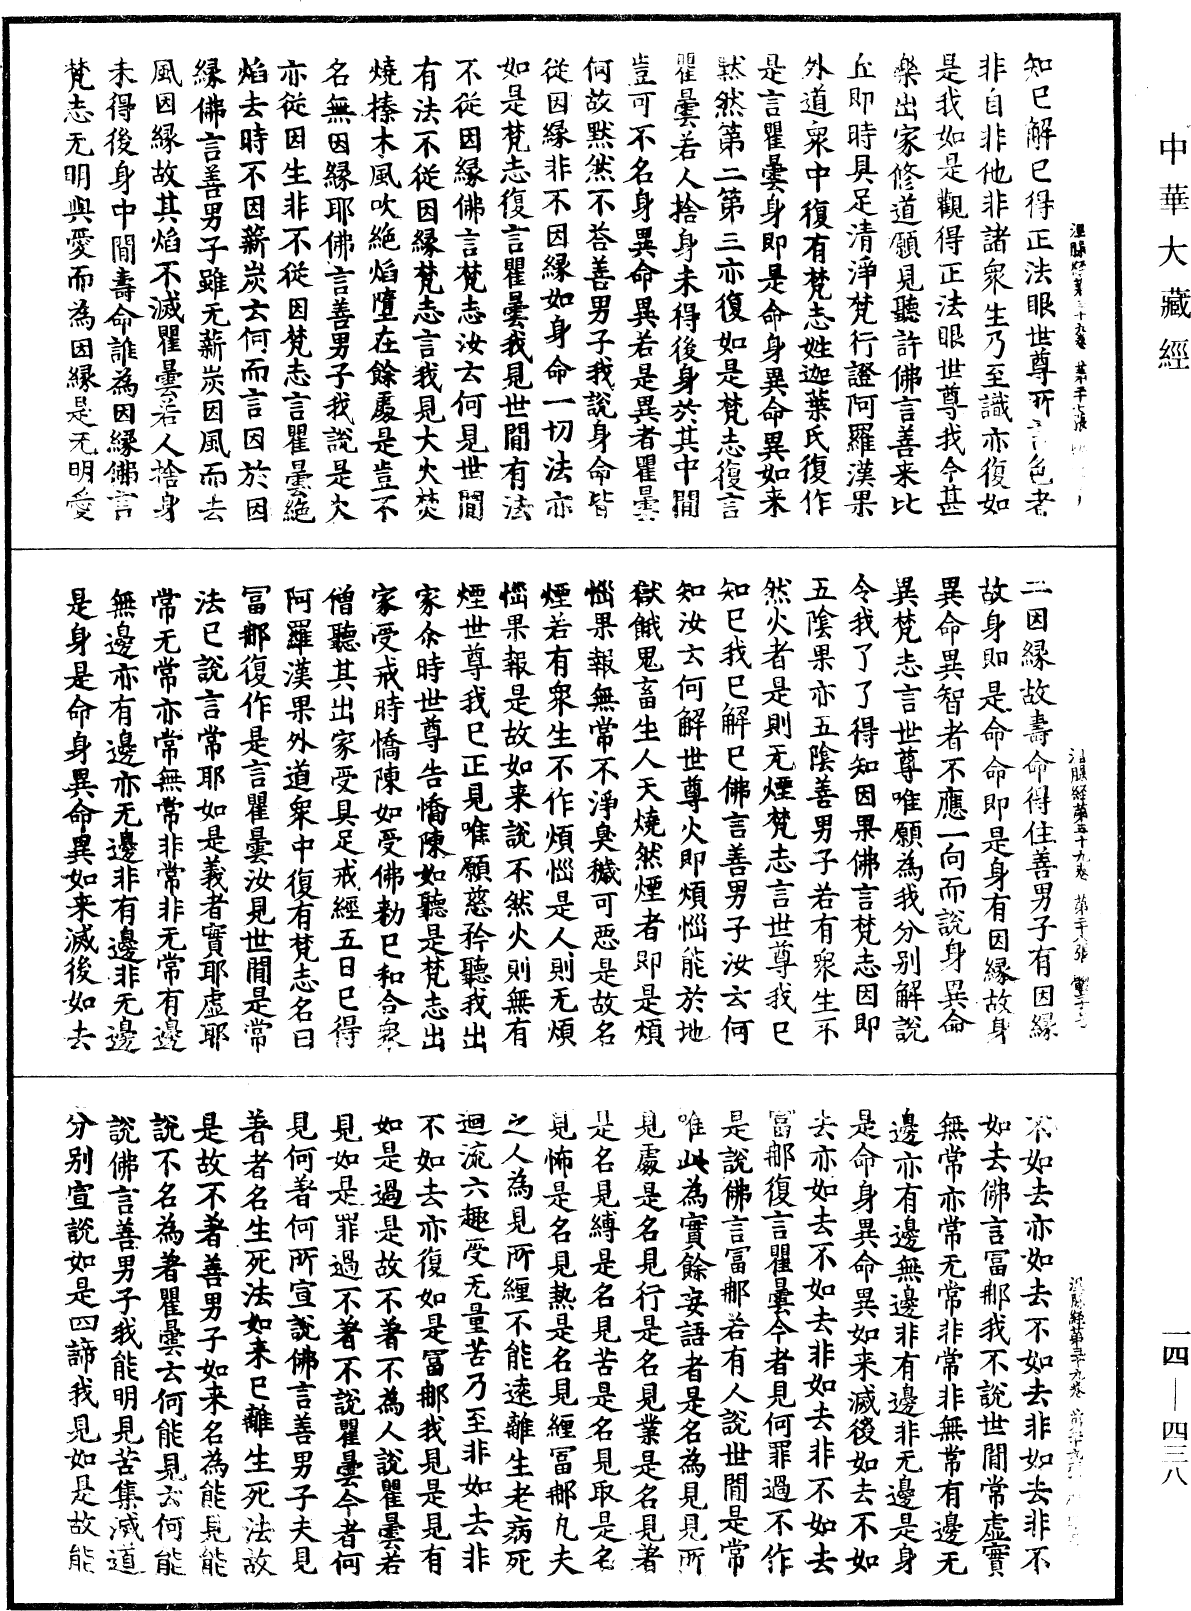 中華大藏經
知已解已得正法眼世尊所言色者
非自非他非諸衆生乃至識亦復如
是我如是觀得正法眼世尊我今甚
樂出家修道願見聽許佛言善来比
丘即時具足清淨梵行證阿羅漢果
外道衆中復有梵志姓迦葉氏復作
是言瞿曇身即是命身異命異如来
默然第二第三亦復如是梵志復言
瞿曇若人捨身未得後身於其中間
豈可不名身異命異若是異者瞿曇
何故默然不荅善男子我說身命皆
從因緣非不因緣如身命一切法亦
如是梵志復言瞿曇我見世間有法
不從因緣佛言梵志汝云何見世間
有法不從因緣梵志言我見大火焚
燒榛木風吹絶焰墮在餘處是豈不
名無因緣耶佛言善男子我說是火
亦從因生非不從因梵志言瞿曇絶
焰去時不因薪炭云何而言因於因
緣佛言善男子雖无薪炭因風而去
風因緣故其焰不滅瞿曇若人捨身
未得後身中間壽命誰為因緣佛言
梵志无明與愛而為因緣是无明愛
二因緣故壽命得住善男子有因緣
故身即是命命即是身有因緣故身
異命異智者不應一向而說身異命
異梵志言世尊唯願為我分別解說
令我了了得知因果佛言梵志因即
五陰果亦五陰善男子若有衆生不
然火者是則无煙梵志言世尊我已
知已我已解已佛言善男子汝云何
知汝云何解世尊火即煩惱能於地
獄餓鬼畜生人天燒然煙者即是煩
惱果報無常不淨臭穢可惡是故名
煙若有衆生不作煩惱是人則无煩
惱果報是故如来說不然火則無有
煙世尊我已正見唯願慈矜聽我出
家尒時世尊告憍陳如聽是梵志出
家受戒時憍陳如受佛勑已和合衆
僧聽其出家受具足戒經五日已得
阿羅漢果外道衆中復有梵志名曰
冨那復作是言瞿曇汝見世間是常
法已說言常耶如是義者實耶虛耶
常无常亦常無常非常非无常有邊
無邊亦有邊亦无邊非有邊非无邊
是身是命身異命異如来滅後如去
不如去亦如去不如去非如去非不
如去佛言冨那我不說世間常虛實
無常亦常无常非常非無常有邊无
邊亦有邊無邊非有邊非无邊是身
是命身異命異如来滅後如去不如
去亦如去不如去非如去非不如去
冨那復言瞿曇今者見何罪過不作
是說佛言冨那若有人說世間是常
唯此為實餘妄語者是名為見見所
見處是名見行是名見業是名見著
是名見縛是名見苦是名見取是名
見怖是名見熱是名見纏冨那凡夫
之人為見所纏不能遠離生老病死
迴流六趣受无量苦乃至非如去非
不如去亦復如是冨那我見是見有
如是過是故不著不為人說瞿曇若
見如是罪過不著不說瞿曇今者何
見何著何所宣說佛言善男子夫見
著者名生死法如来已離生死法故
是故不著善男子如来名為能見能
說不名為著瞿曇云何能見云何能
說佛言善男子我能明見苦集滅道
分別宣說如是四諦我見如是故能
一四—四三八